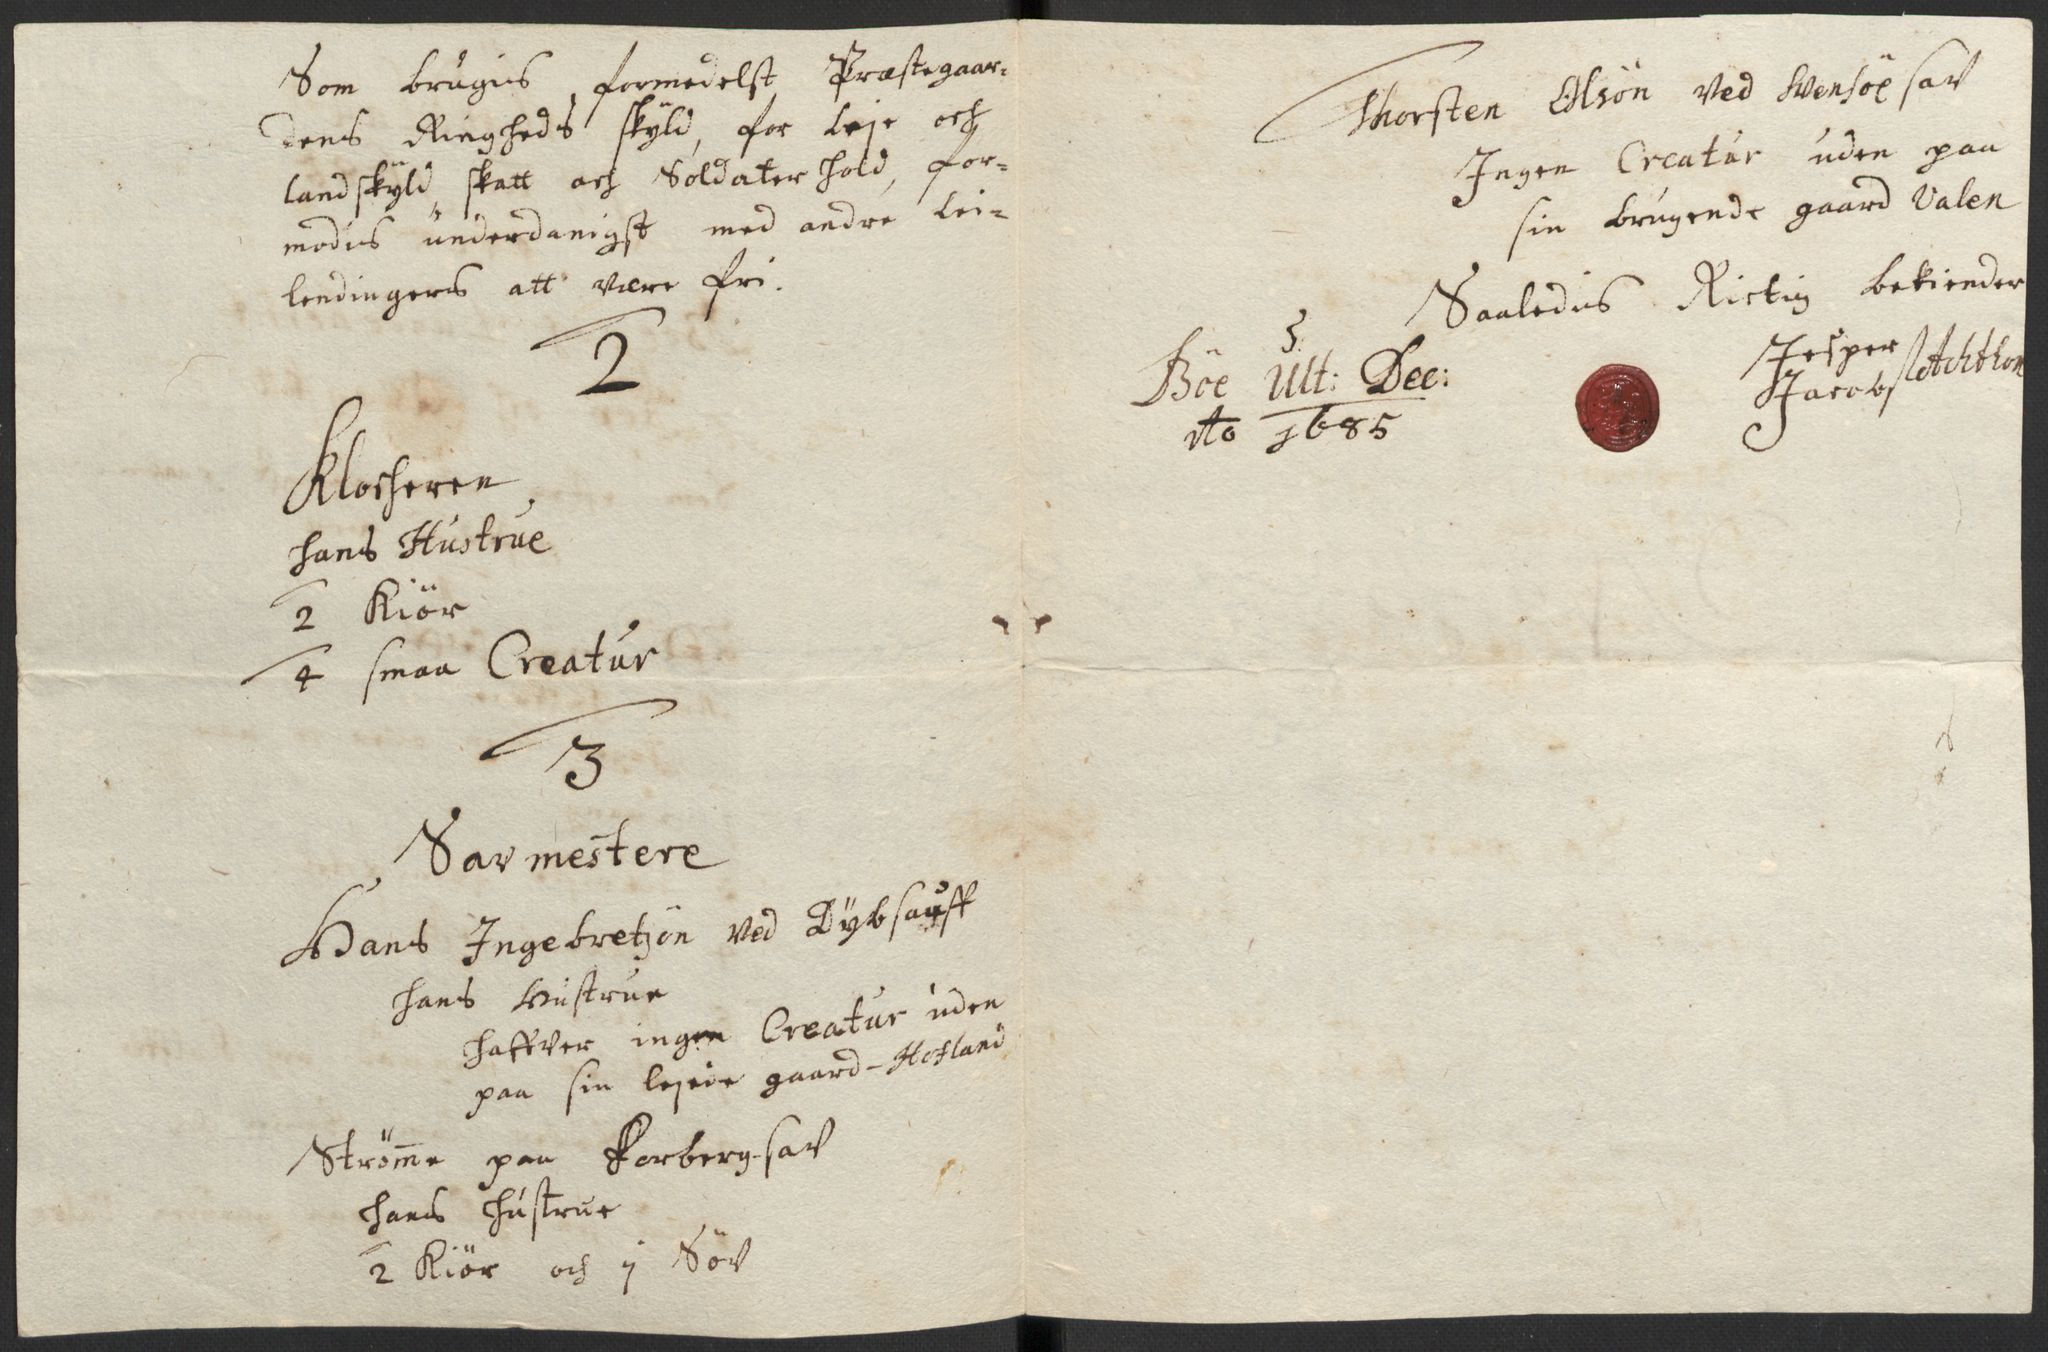 Som brugis formedelst Præstegaar-
dens Ringheds skyld, for Leje och
landskyld, skatt och Soldater hold, for-
modis underdanigst med andre Lei-
lendingers att være fri.
2
Klocheren
hans Hustrue
2 Kiör
4 smaa Creatur
3
Savmestere
Hans Ingebretzön ved Dybsauff
hans Hustrue
haffver ingen Creatur uden
paa sin lejede gaard - Hofland
Ström̅e paa Porberg-sav
hans hustrue
2 Kiör och j Söv
Thorsten Olsön ved sav
Ingen Creatur uden paa
sin brugende gaard Valen
Saaledis Rictig bekiender
Jesper
Jacobs Achthon
Böe Ult: Dec:
Ao 1685